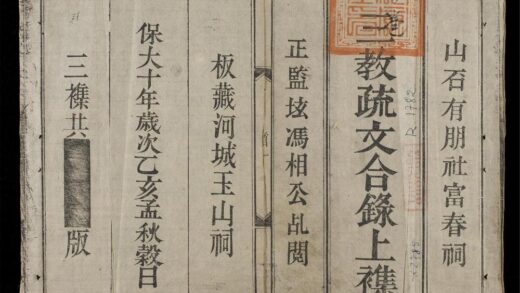 山石有朋社富春祠
三教疏文合錄上襍
R.1782
正監坛馮相公乩閲
首一
板藏河城玉山祠
保大十年歲次乙亥孟秋穀日
三襍共
版